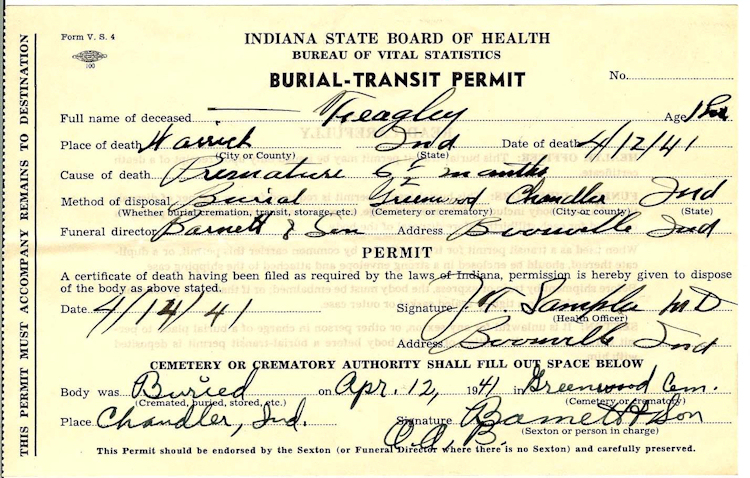 Form V. S. 4
100
INDIANA STATE BOARD OF HEALTH
BUREAU OF VITAL STATISTICS
BURIAL-TRANSIT PERMIT
No.
Full name of deceased — Feagley Age 1 hr
Place of death Warrick Ind Date of death 4/12/41
(City or County) (State)
Cause of death Premature 6 1/2 months
Method of disposal Burial Greenwood Chandler Ind
(Whether burial, cremation, transit, storage, etc.) (Cemetery or crematory) (City or county) (State)
Funeral director Barnett & Son Address Boonville Ind
PERMIT
A certificate of death having been filed as required by the laws of Indiana, permission is hereby given to dispose
of the body as above stated.
Date 4/14/41 Signature M D
(Health Officer)
Address Boonville Ind
CEMETERY OR CREMATORY AUTHORITY SHALL FILL OUT SPACE BELOW
Body was Buried on Apr. 12, 1941 in Greenwood Cem.
(Cremated, buried, stored, etc.) (Cemetery or crematory)
Place Chandler, Ind. Signature Barnett & Son
(Sexton or person in charge)
This Permit should be endorsed by the Sexton (or Funeral Director where there is no Sexton) and carefully preserved.
THIS PERMIT MUST ACCOMPANY REMAINS TO DESTINATION